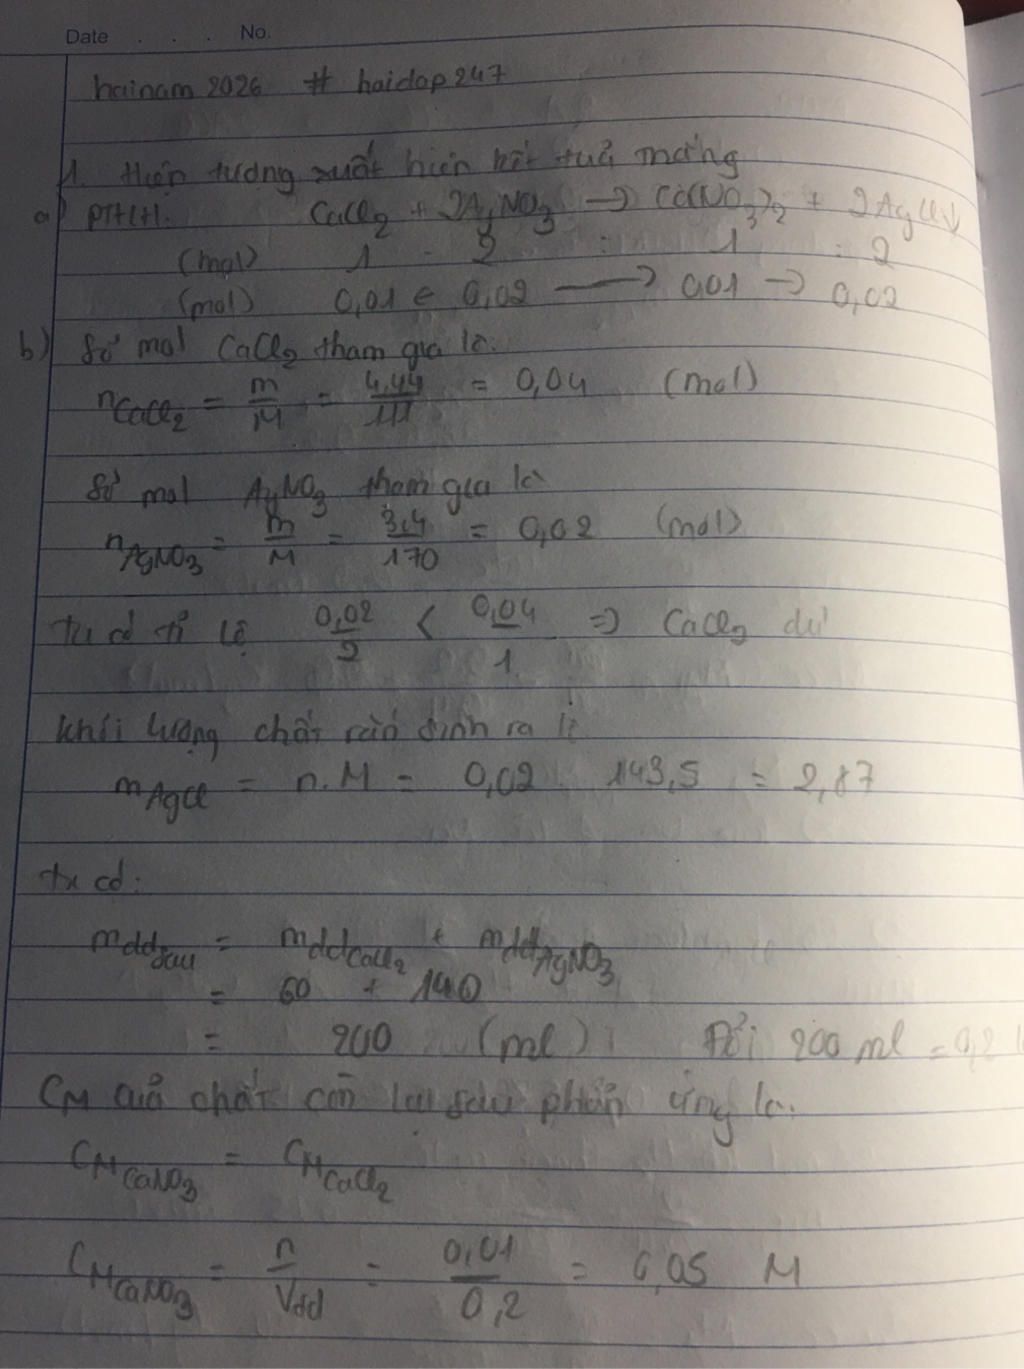 Date . . . No.
hainam2026 # hoidap247
1. Hiện tượng xuất hiện kết tuả trắng
a) PTHH: CaCl2 + 2AgNO3 → Ca(NO3)2 + 2AgCl↓
(mol) 1 : 2 : 1 : 2
(mol) 0,01 ← 0,02 → 0,01 → 0,02
b) Số mol CaCl2 tham gia là:
nCaCl2 = m/M = 4,44/111 = 0,04 (mol)
Số mol AgNO3 tham gia là
nAgNO3 = m/M = 3,4/170 = 0,02 (mol)
ta có tỉ lệ 0,02/2 < 0,04/1 => CaCl2 dư
khối lượng chất rắn sinh ra là
mAgCl = n.M = 0,02 . 143,5 = 2,87
ta có:
mddsau = mddCaCl2 + mddAgNO3
= 60 + 140
= 200 (ml) Đổi 200 ml = 0,2 l
CM của chất còn lại sau phản ứng là:
CMCaNO3 = CMCaCl2
CMCaNO3 = n/Vdd = 0,01/0,2 = 0,05 M